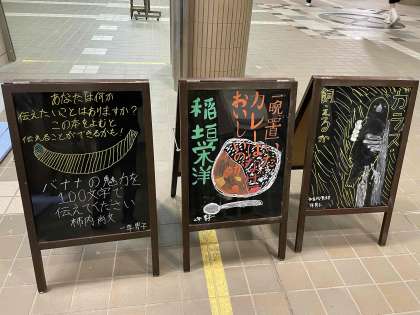 あなたは何か
伝えたいことはありますか？
この本をよむと
伝えることができるかも！
バナナの魅力を
100文字で
伝えてください
柿内尚文
一年 男子
一晩置いた
カレーは
おいし
稲垣栄洋
カラスは
飼えるか